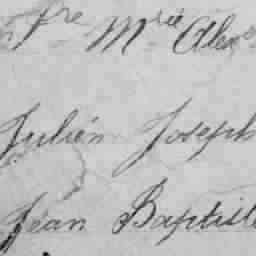 fre Mrie Alex
Julien Joseph
Jean Baptiste